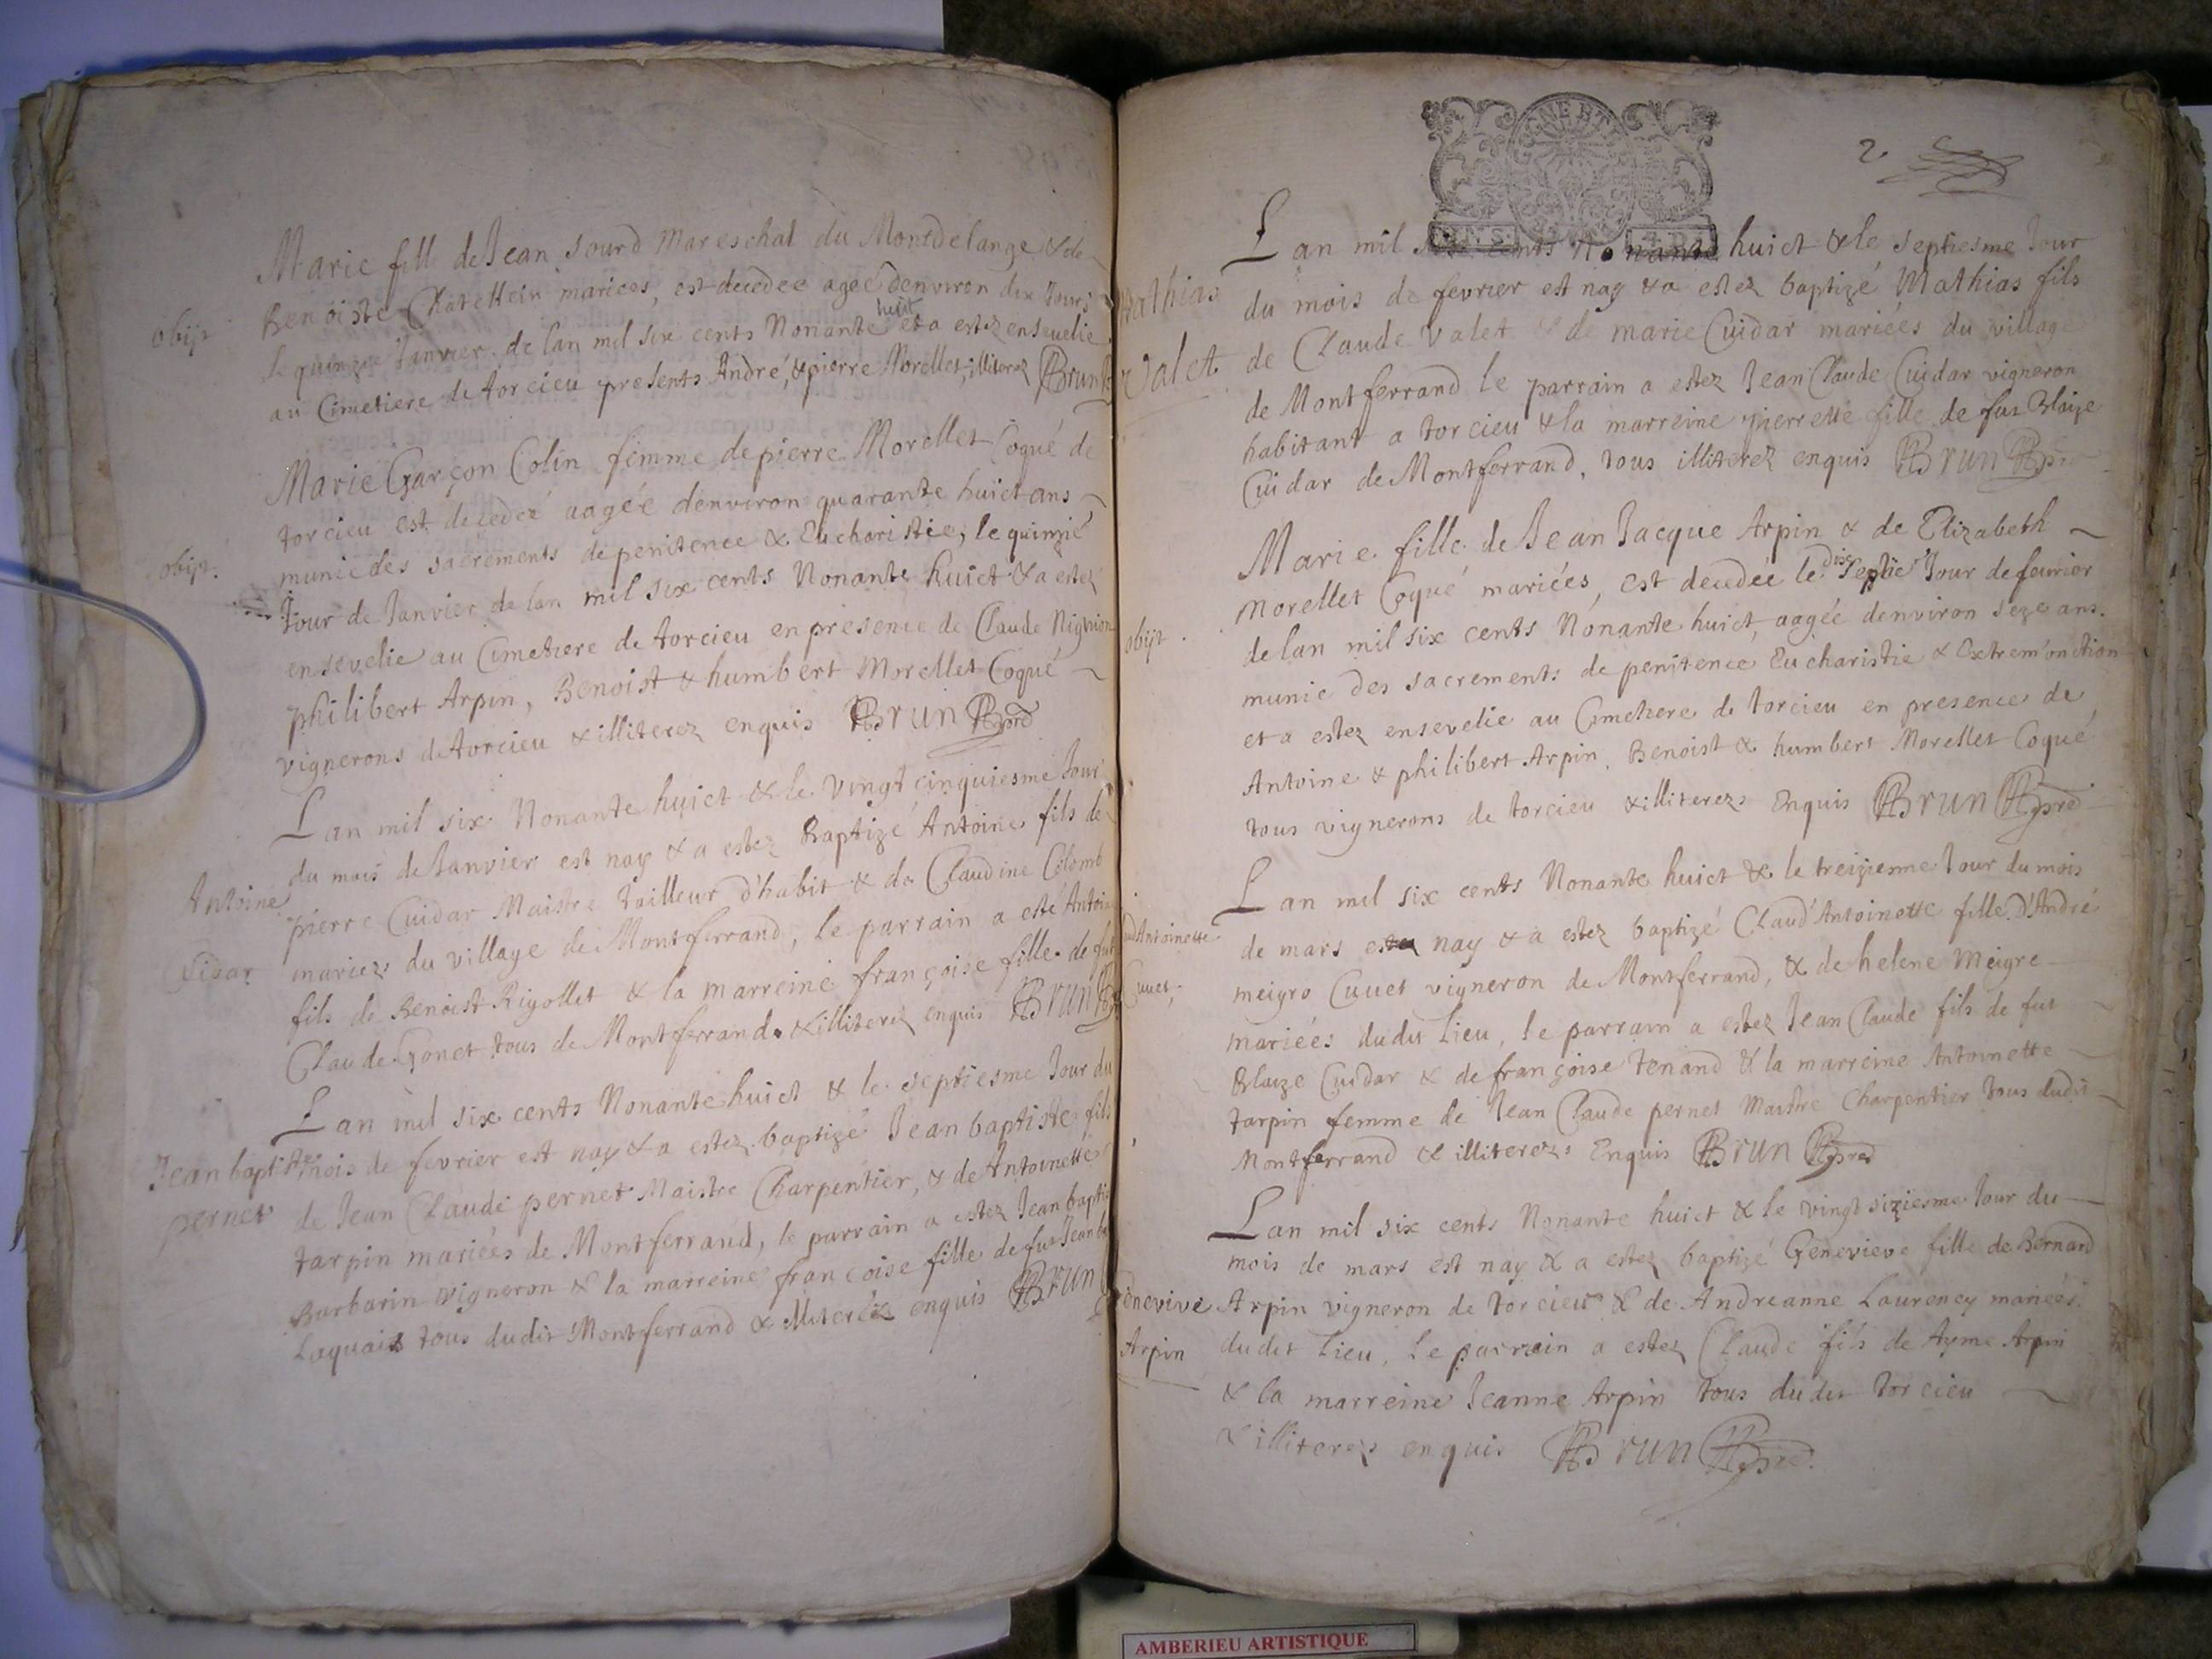 Marie fille de Jean Sourd Mareschal du Montdelange & de
Benoiste Chatellein mariees, est decedee agee denviron dix Jours
obijt
huit
le quinzie Janvier de lan mil six cents Nonante et a estez ensevelie
au Cimetiere de torcieu presents André, & pierre Morellet, illiterez Brun
Marie Garçon Colin femme de pierre Morellet Coqué de
torcieu est decedeé aagée denviron quarante huict ans
obijt.
munie des sacrements de penitence & Eucharistie, le quinzié
Jour de Janvier de lan mil six cents Nonante huict & a estez
ensevelie au Cimetiere de torcieu en presence de Claude
philibert Arpin, Benoist & humbert Morellet Coqué
vignerons de torcieu & illiterez enquis Brun
Lan mil six Nonante huict & le vingt cinquiesme Jour
du mois de Janvier est nay & a estez Baptizé Antoine fils de
Antoine
pierre Cuidar Maistre tailleur d'habit & de Claudine Colomb
Cuidar
mariezs du village de Montferrand, le parrain a esté Antoine
fils de Benoist Rigollet & la marreine françoise fille de fut
Claude Gonet tous de Montferrand & illiterez enquis Brun
Lan mil six cents Nonante huict & le septiesme Jour du
Jean baptiste
mois de fevrier est nay & a estez baptizé Jean baptiste fils
pernet
de Jean Claude pernet Maistre Charpentier, & de Antoinette
tarpin mariées de Montferrand, le parrain a estez Jean baptis
Barbarin vigneron & la marreine françoise fille de fut Jean ba
Laquais tous dudit Montferrand & illiterez enquis Brun
2.
Lan mil six cents Nonante huict & le septiesme Jour
Mathias
du mois de fevrier est nay & a estez baptizé Mathias fils
Valet
de Claude Valet & de marie Cuidar mariées du village
de Montferrand le parrain a estez Jean Claude Cuidar vigneron
habitant a torcieu & la marreine pierrette fille de fut Blaize
Cuidar de Montferrand, tous illiterez enquis Brun
Marie fille de Jean Jacque Arpin & de Elizabeth
dix
Morellet Coqué mariées, est decedée le septie Jour de fevrier
obijt.
de lan mil six cents Nonante huict, aagée denviron seze ans.
munie des sacrements de penitence Eucharistie & Extrem'onction
et a estez ensevelie au Cimetiere de torcieu en presence de
Antoine & philibert Arpin, Benoist & humbert Morellet Coqué
tous vignerons de torcieu & illiterezs Enquis Brun
Lan mil six cents Nonante huict & le treiziesme Jour du mois
Antoinette
de mars est nay & a estez baptizé Claud'Antoinette fille d'André
Cuuet,
meigro Cuuet vigneron de Montferrand, & de helene Meigre
mariées dudit Lieu, le parrain a estez Jean Claude fils de fut
Blaize Cuidar & de françoise tenand & la marreine Antoinette
tarpin femme de Jean Claude pernet Maistre Charpentier tous dudit
Montferrand & illiterezs Enquis Brun
Lan mil six cents Nonante huict & le vingt siziesme Jour du
mois de mars est nay & a estez baptizé Genevieve fille de Bernard
Genevive
Arpin vigneron de torcieu & de Andreanne Laurency mariées
Arpin
dudit Lieu, le parrain a estez Claude fils de Ayme Arpin
& la marreine Jeanne Arpin tous dudit torcieu
& illiterezs enquis Brun
AMBERIEU ARTISTIQUE